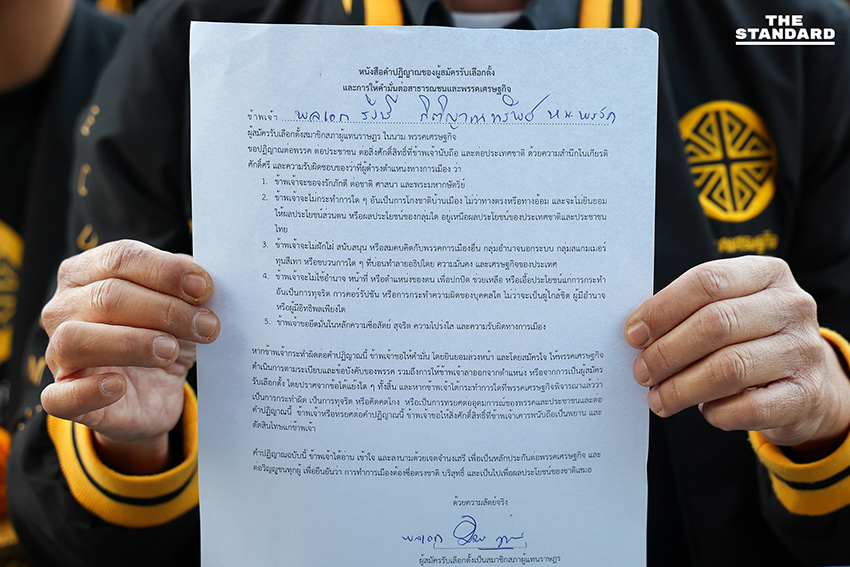 THE
STANDARD
หนังสือคำปฏิญาณของผู้สมัครรับเลือกตั้ง
และการให้คำมั่นต่อสาธารณชนและพรรคเศรษฐกิจ
ข้าพเจ้า พลเอก รังษี กิติญาณทรัพย์ หน.พรรค
ผู้สมัครรับเลือกตั้งสมาชิกสภาผู้แทนราษฎร ในนาม พรรคเศรษฐกิจ
ขอปฏิญาณต่อพรรค ต่อประชาชน ต่อสิ่งศักดิ์สิทธิ์ที่ข้าพเจ้านับถือ และต่อประเทศชาติ ด้วยความสำนึกในเกียรติ
ศักดิ์ศรี และความรับผิดชอบของว่าที่ผู้ดำรงตำแหน่งทางการเมือง ว่า
1. ข้าพเจ้าจะขอจงรักภักดี ต่อชาติ ศาสนา และพระมหากษัตริย์
2. ข้าพเจ้าจะไม่กระทำการใด ๆ อันเป็นการโกงชาติบ้านเมือง ไม่ว่าทางตรงหรือทางอ้อม และจะไม่ยินยอม
ให้ผลประโยชน์ส่วนตน หรือผลประโยชน์ของกลุ่มใด อยู่เหนือผลประโยชน์ของประเทศชาติและประชาชน
ไทย
3. ข้าพเจ้าจะไม่ฝักใฝ่ สนับสนุน หรือสมคบคิดกับพรรคการเมืองอื่น กลุ่มอำนาจนอกระบบ กลุ่มสแกมเมอร์
ทุนสีเทา หรือขบวนการใด ๆ ที่บ่อนทำลายอธิปไตย ความมั่นคง และเศรษฐกิจของประเทศ
4. ข้าพเจ้าจะไม่ใช้อำนาจ หน้าที่ หรือตำแหน่งของตน เพื่อปกปิด ช่วยเหลือ หรือเอื้อประโยชน์แก่การกระทำ
อันเป็นการทุจริต การคอร์รัปชัน หรือการกระทำความผิดของบุคคลใด ไม่ว่าจะเป็นผู้ใกล้ชิด ผู้มีอำนาจ
หรือผู้มีอิทธิพลเพียงใด
5. ข้าพเจ้าขอยึดมั่นในหลักความซื่อสัตย์ สุจริต ความโปร่งใส และความรับผิดทางการเมือง
หากข้าพเจ้ากระทำผิดต่อคำปฏิญาณนี้ ข้าพเจ้าขอให้คำมั่น โดยยินยอมล่วงหน้า และโดยสมัครใจ ให้พรรคเศรษฐกิจ
ดำเนินการตามระเบียบและข้อบังคับของพรรค รวมถึงการให้ข้าพเจ้าลาออกจากตำแหน่ง หรือจากการเป็นผู้สมัคร
รับเลือกตั้ง โดยปราศจากข้อโต้แย้งใด ๆ ทั้งสิ้น และหากข้าพเจ้าได้กระทำการใดที่พรรคเศรษฐกิจพิจารณาแล้วว่า
เป็นการกระทำผิด เป็นการทุจริต หรือคิดคดโกง หรือเป็นการทรยศต่ออุดมการณ์ของพรรคและประชาชนและต่อ
คำปฏิญาณนี้ ข้าพเจ้าหรือทรยศต่อคำปฏิญาณนี้ ข้าพเจ้าขอให้สิ่งศักดิ์สิทธิ์ที่ข้าพเจ้าเคารพนับถือเป็นพยาน และ
ตัดสินโทษแก่ข้าพเจ้า
คำปฏิญาณฉบับนี้ ข้าพเจ้าได้อ่าน เข้าใจ และลงนามด้วยเจตจำนงเสรี เพื่อเป็นหลักประกันต่อพรรคเศรษฐกิจ และ
ต่อวิญญูชนทุกผู้ เพื่อยืนยันว่า การทำการเมืองต้องซื่อตรงชาติ บริสุทธิ์ และเป็นไปเพื่อผลประโยชน์ของชาติเสมอ
ด้วยความสัตย์จริง
พลเอก
ผู้สมัครรับเลือกตั้งเป็นสมาชิกสภาผู้แทนราษฎร